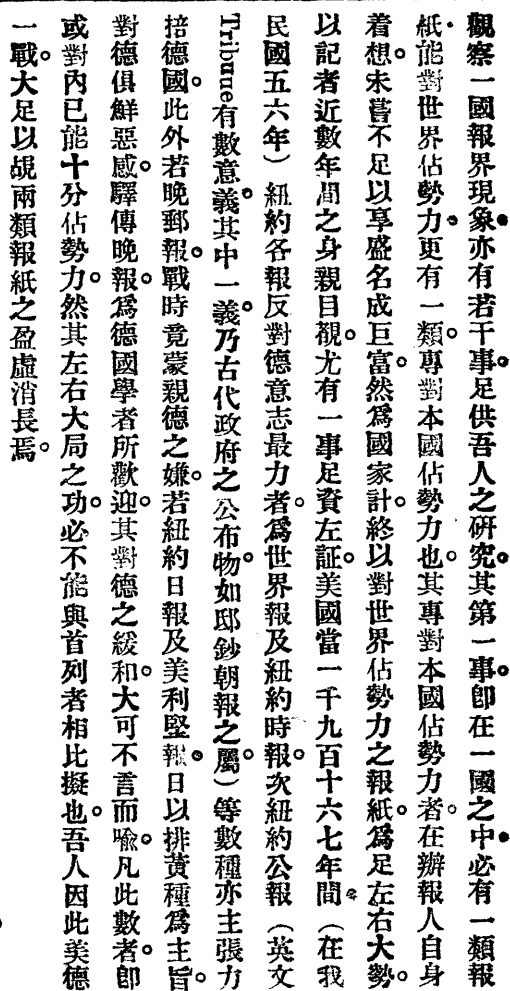 觀察一國報界現象亦有若干事。足供吾人之研究。其第一事。卽在一國之中。必有一類報
紙。能對世界佔勢力。更有一類。專對本國佔勢力也。其專對本國佔勢力者。在辦報人自身
着想。未嘗不足以享盛名成巨富。然爲國家計。終以對世界佔勢力之報紙。爲足左右大勢。
以記者近數年間之身親目覩。尤有一事足資左証。美國當一千九百十六七年間。（在我
民國五六年）紐約各報反對德意志最力者。爲世界報及紐約時報。次紐約公報（英文
Tribune有數意義。其中一義。乃古代政府之公布物。如邸鈔朝報之屬。）等數種亦主張力
掊德國。此外若晚郵報。戰時竟蒙親德之嫌。若紐約日報及美利堅報。日以排黃種爲主旨。
對德俱鮮惡感。驛傳晚報。爲德國學者所歡迎。其對德之緩和。大可不言而喩。凡此數者。卽
或對內已能十分佔勢力。然其左右大局之功。必不能與首列者相比擬也。吾人因此美德
一戰。大足以覘兩類報紙之盈虛消長焉。